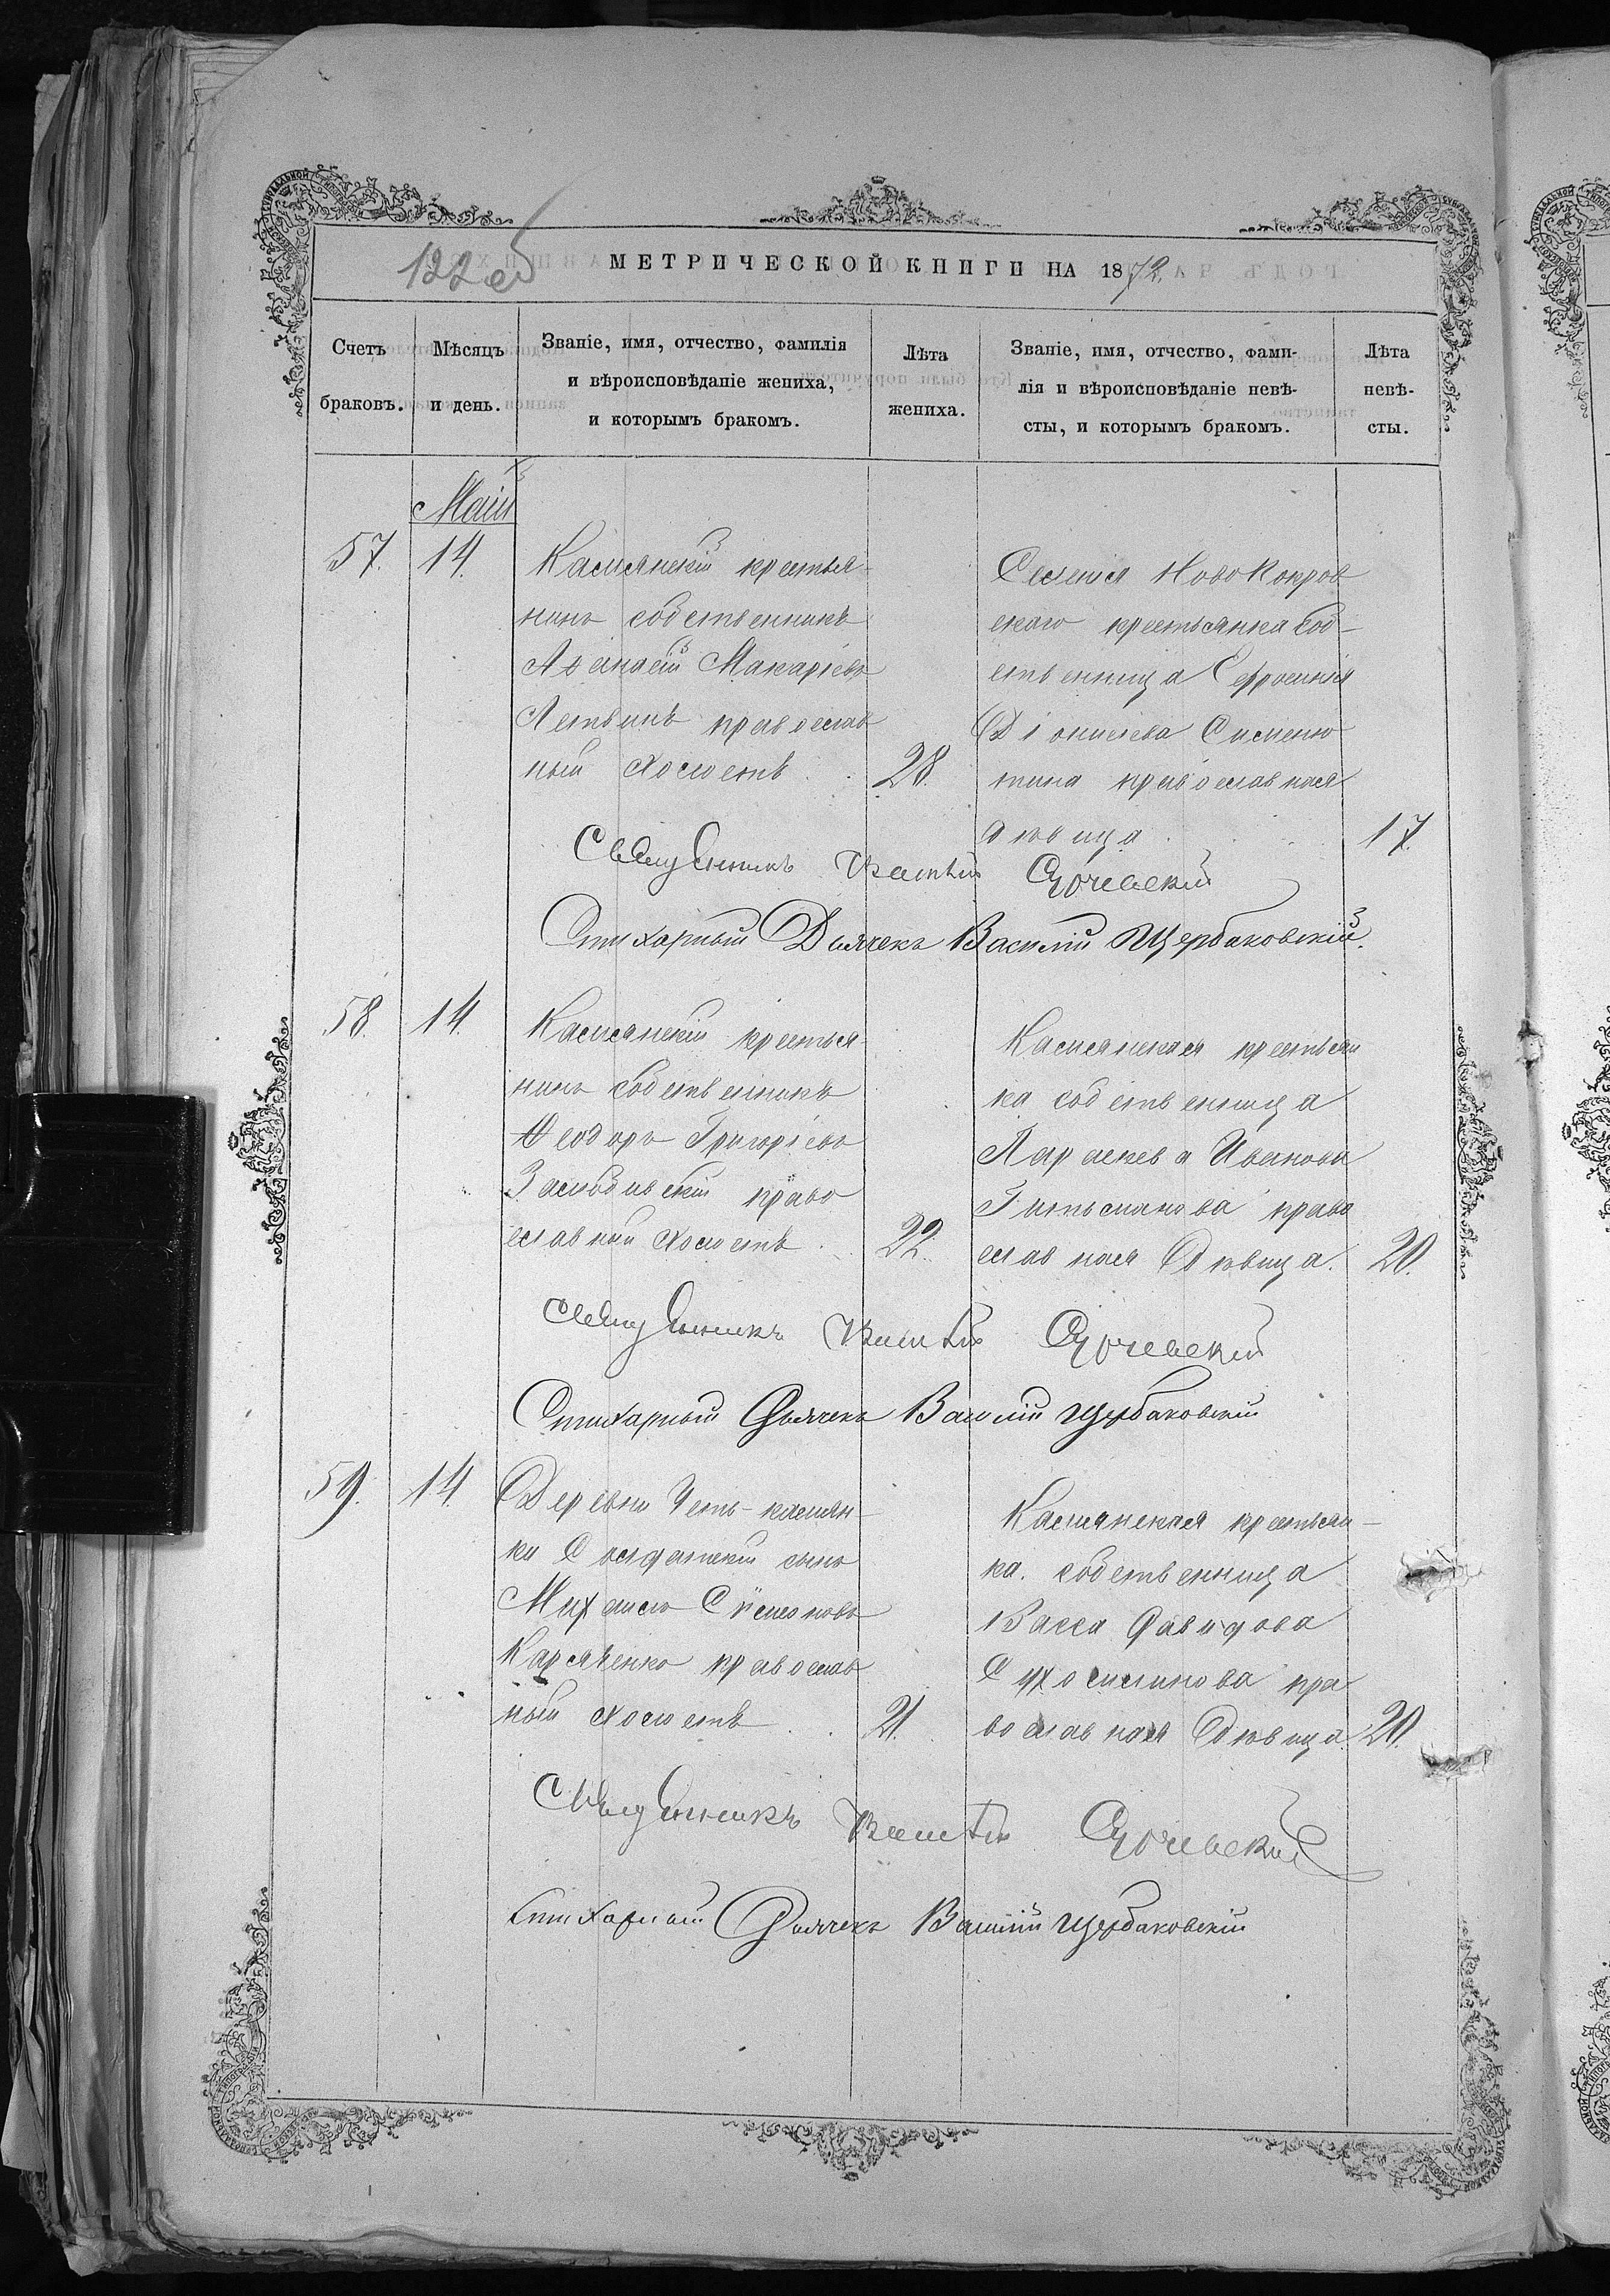 122 об
МЕТРИЧЕСКОЙ КНИГИ НА 1872
Счетъ браковъ.
Мѣсяцъ и день.
Званіе, имя, отчество, фамилія
и вѣроисповѣданіе жениха,
и которымъ бракомъ.
Лѣта
жениха.
Званіе, имя, отчество, фами-
лія и вѣроисповѣданіе невѣ-
сты, и которымъ бракомъ.
Лѣта
невѣ-
сты.
Май
57. 14.
Камянскій крестья-
нинъ собственникъ
Аѳанасій Макаріевъ
православ
ный холостъ . . 28.
Селенія Новопокров
скаго крестьянка соб-
ственница Ефросинія
Діонисіева
православная
дѣвица . . 17.
Священникъ
Стихарный Дьячекъ Василій Щербаковскій.
58. 14.
Камянскій крестья
нинъ собственникъ
Ѳеодоръ Григоріевъ
право
славный холостъ . . 22.
Камянская крестьян
ка собственница
Параскева Иванова
право
славная дѣвица. 20.
Священникъ
Стихарный Дьячекъ Василій Щербаковскій
59. 14.
Деревни Усть-камян-
ки Солдатскій сынъ
Михаилъ Симеоновъ
православ
ный холостъ . . 21.
Камянская крестьян-
ка собственница
Васса Давидова
Сухомлинова пра
вославная дѣвица 20.
Священникъ
Стихарный Дьячекъ Василій Щербаковскій